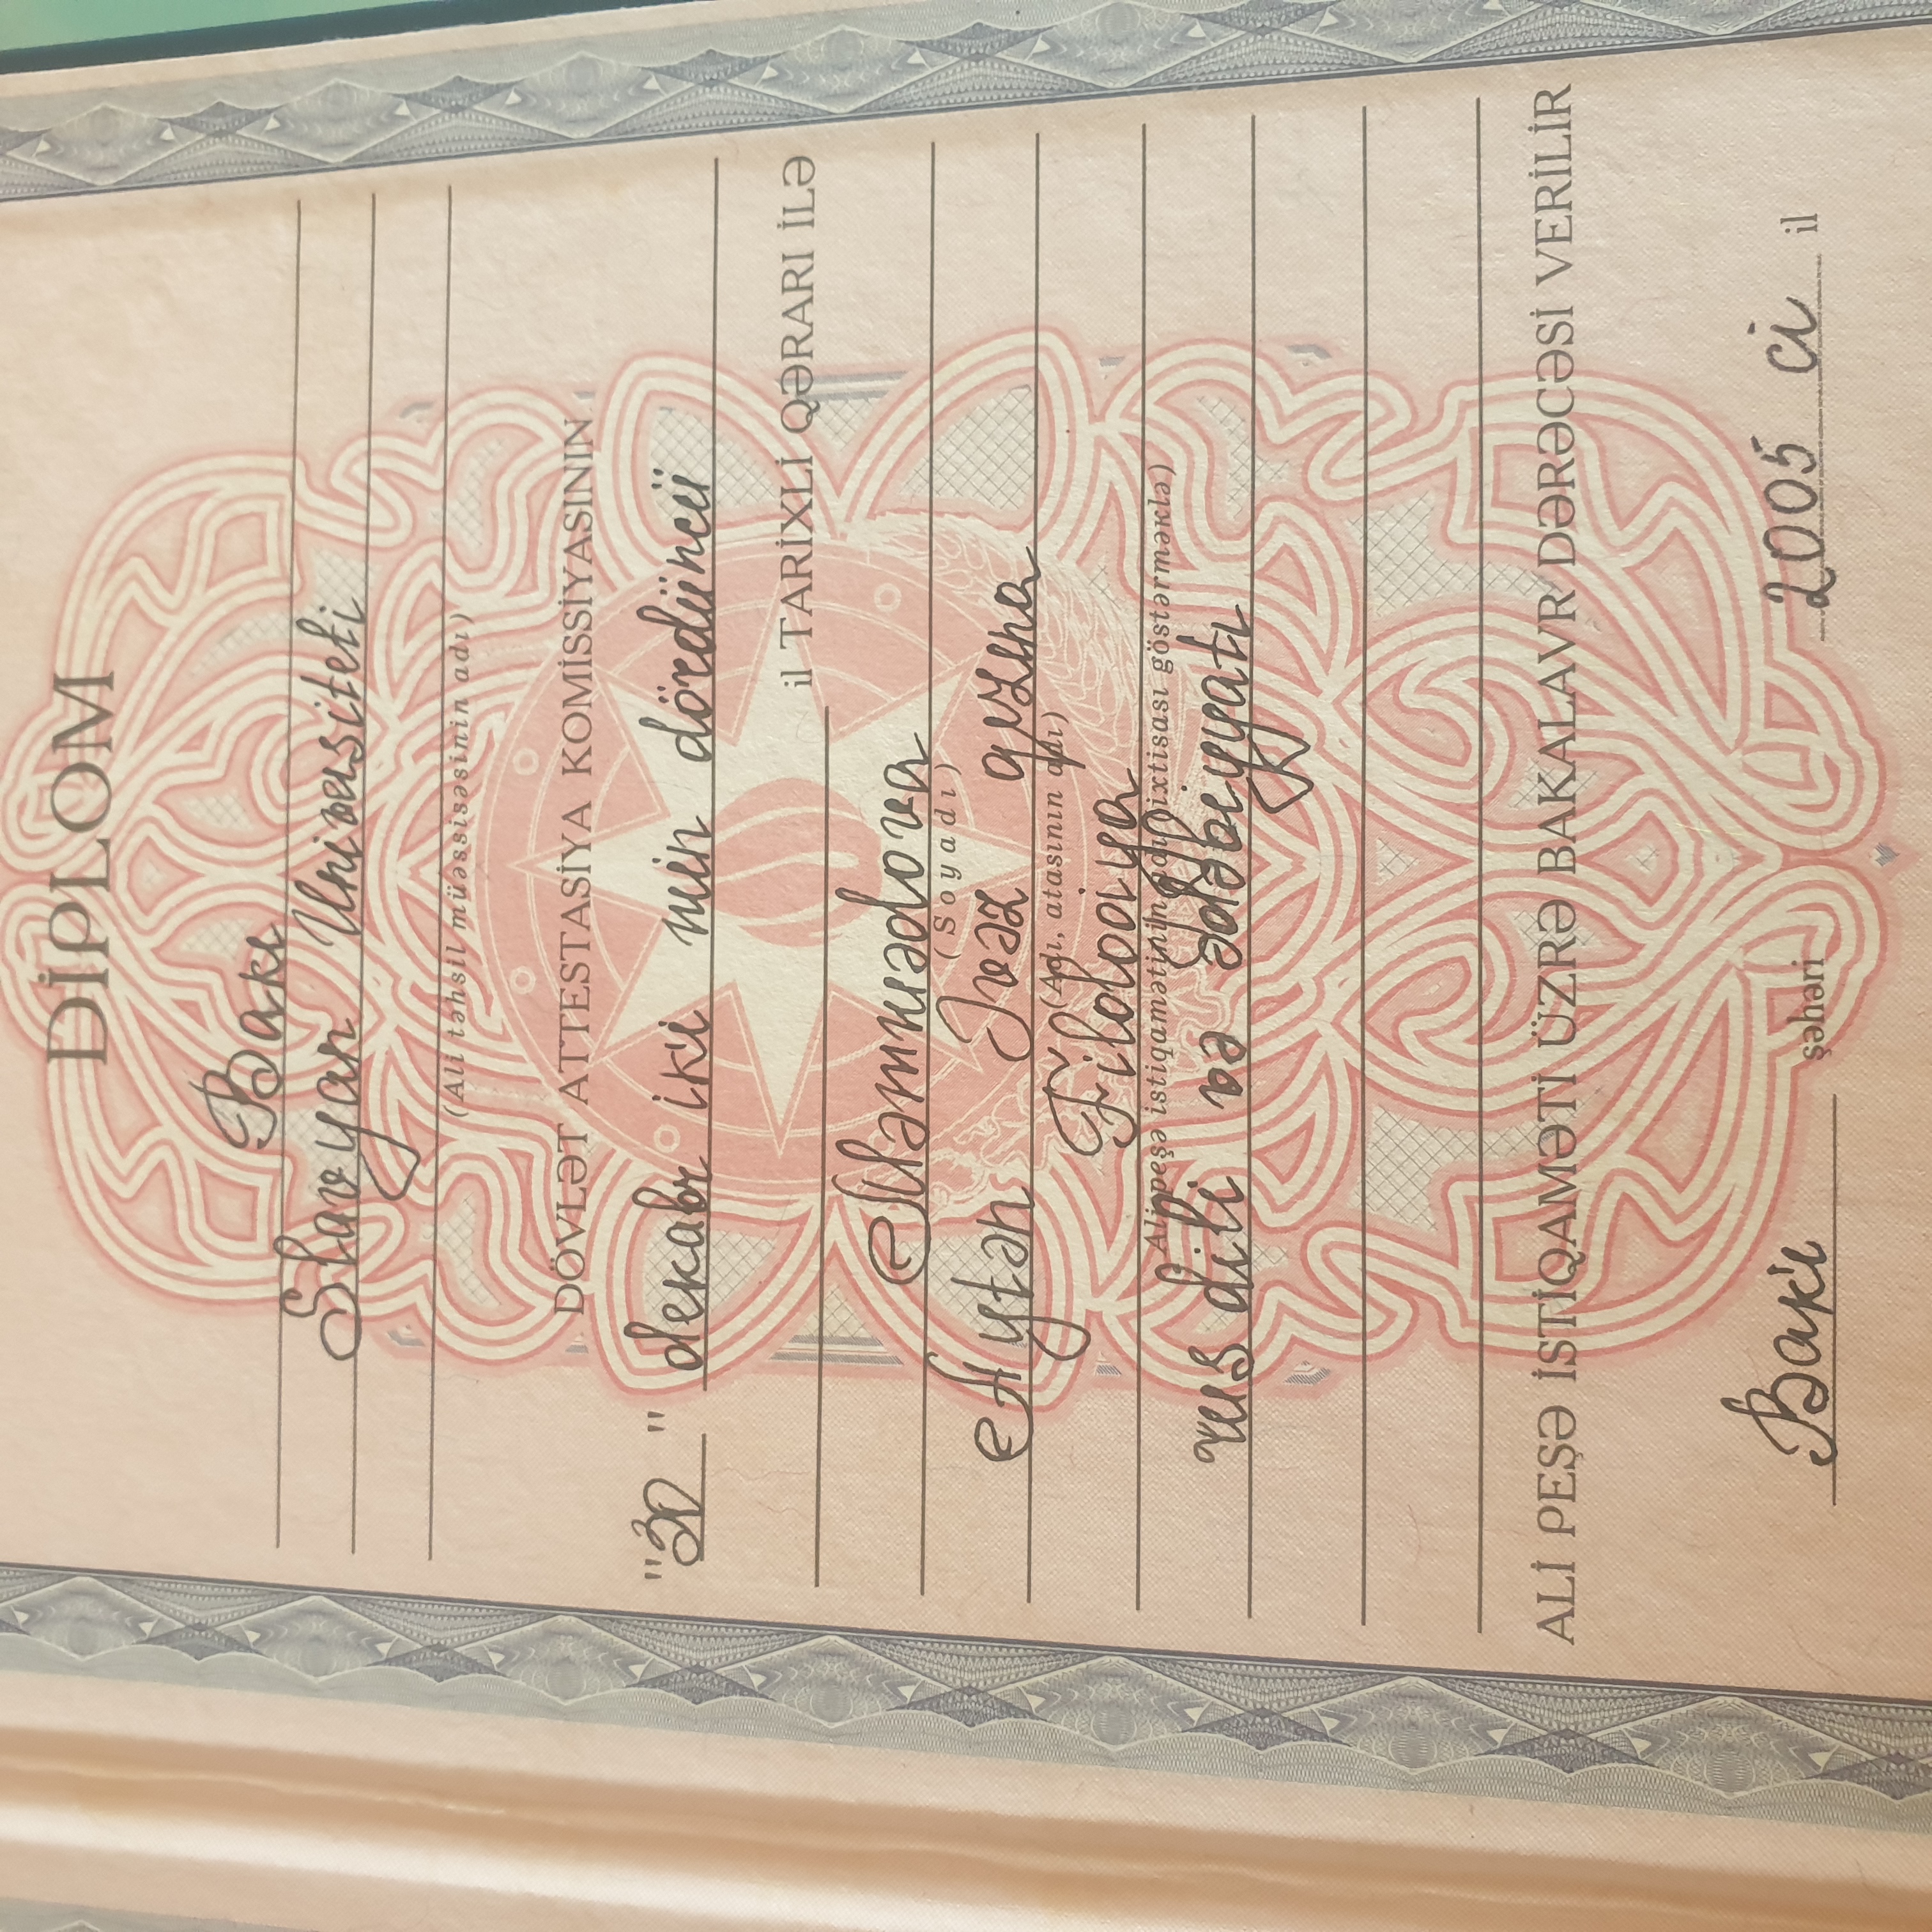 DİPLOM
Bakı
Slavyan Universiteti
(Ali təhsil müəssisəsinin adı)
DÖVLƏT ATTESTASİYA KOMİSSİYASININ
"30" dekabr iki min dördüncü
il TARİXLİ QƏRARI İLƏ
Məmmədova
(Soyadı)
Aytən İvəz qızına
(Adı, atasının adı)
Filoloiya
(Ali peşə istiqamətinin adı, ixtisası göstərməklə)
rus dili və ədəbiyyatı
ALİ PEŞƏ İSTİQAMƏTİ ÜZRƏ BAKALAVR DƏRƏCƏSİ VERİLİR
Bakı şəhəri 2005 ci il